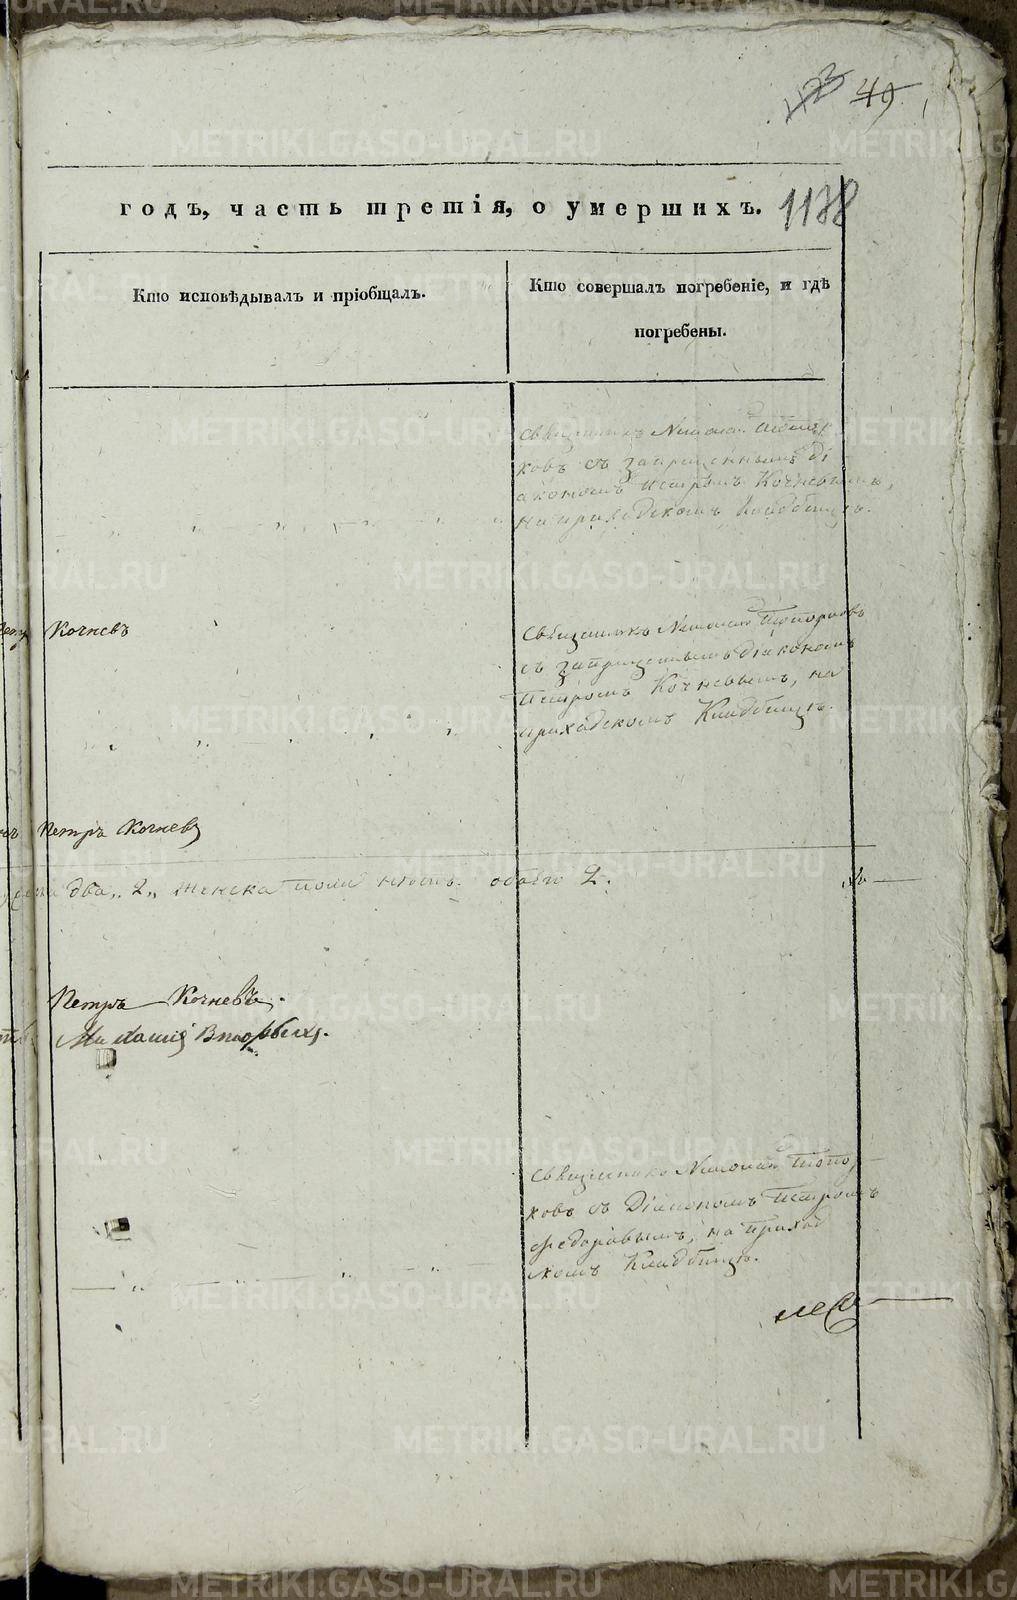 49
годъ, часть третія, о умершихъ. 1138
Кто исповѣдывалъ и пріобщалъ.
Кто совершалъ погребеніе, и гдѣ
погребены.
Священникъ Николай Топор
ковъ съ запрещеннымъ ді
акономъ Петромъ Кочневымъ,
на приходскомъ Кладбищѣ.
Кочневъ
Священникъ Николай Топорковъ
съ запрещеннымъ діакономъ
Петромъ Кочневымъ, на
приходскомъ Кладбищѣ.
Петръ Кочневъ
два „2„ женска пола нѣтъ. обоего 2.
Петръ Кочневъ.
Священникъ Николай Топор
ковъ съ Діакономъ Петромъ
Федоровымъ, на приход
скомъ Кладбищѣ.
METRIKI.GASO-URAL.RU